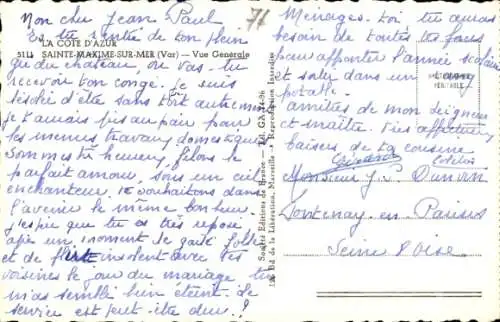 Mon cher Jean Paul
71
Es tu rentré de ton plein
LA COTE D'AZUR
5111 SAINTE-MAXIME-SUR-MER (Var) — Vue Générale
du château ou vas-tu
recevoir ton congé. Je suis
désolée d'être sans toit autrement
je t'aurais bien pris au pair pour
les menus travaux domestiques
Sommes très heureux, filons le
parfait amour, sous un ciel
enchanteur. Te souhaitons dans
l'avenir le même bonheur.
J'espère que tu as très reposé
après un moment de
et de instant avec tes
voisines le jour du mariage tu
m'as semblé bien éteint. Le
service est peut être dur!
Ménages-toi, tu auras
besoin de toutes tes forces
pour affronter l'année scolaire
et
Amitiés de mon seigneur
et maître. Très affectueux
baisers de ta cousine
Monsieur J.
Fontenay-en-Parisis
Seine & Oise
Société Editions de France
Bd de la Libération, Marseille - Reproduction Interdite